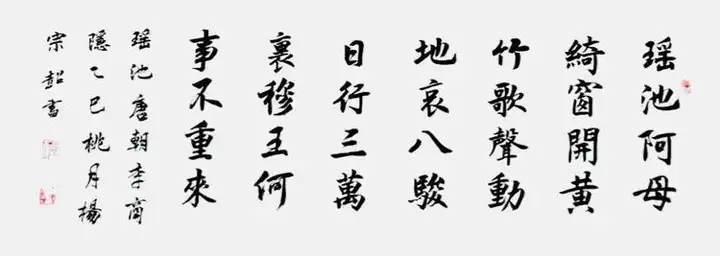 瑶池阿母
綺窗開黄
竹歌聲動
地哀八駿
日行三萬
裏穆王何
事不重來
瑶池唐朝李商
隱乙巳桃月楊
宗超書